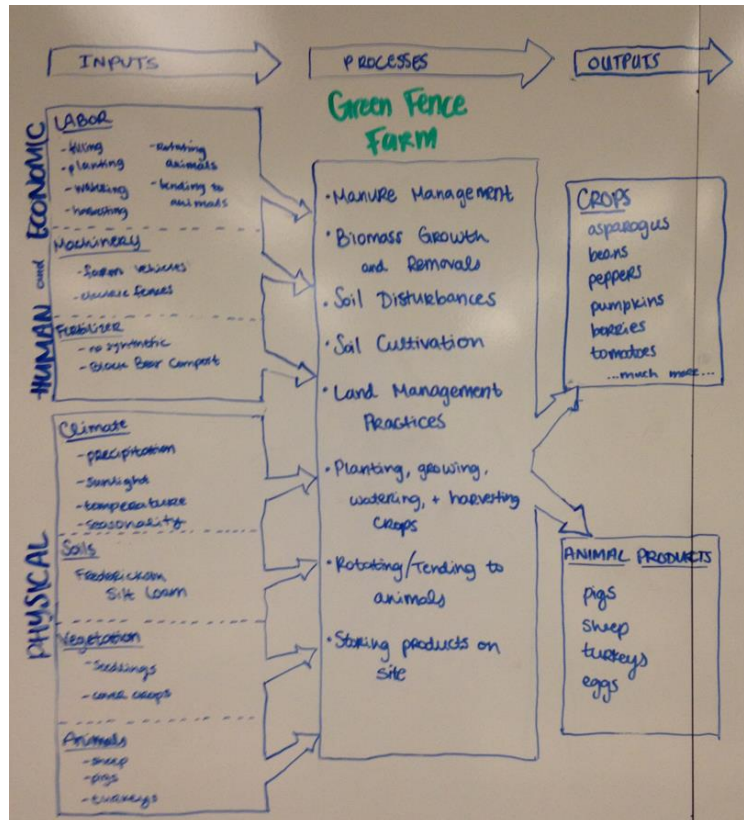 INPUTS
PROCESSES
OUTPUTS
Green Fence
Farm
HUMAN and ECONOMIC
LABOR
-tilling
-planting
-watering
-harvesting
-Rotating
animals
-tending to
animals
Machinery
-farm vehicles
-electric fences
Fertilizer
-no synthetic
-Black Bear Compost
PHYSICAL
Climate
-precipitation
-sunlight
-temperature
-seasonality
Soils
Silt Loam
Vegetation
-seedlings
-cover crops
Animals
-sheep
-pigs
-turkeys
•Manure Management
•Biomass Growth
and Removals
•Soil Disturbances
•Soil Cultivation
•Land Management
Practices
•Planting, growing,
watering, + harvesting
crops
•Rotating/Tending to
animals
•Storing products on
site
CROPS
asparagus
beans
peppers
pumpkins
berries
tomatoes
...much more...
ANIMAL PRODUCTS
pigs
sheep
turkeys
eggs